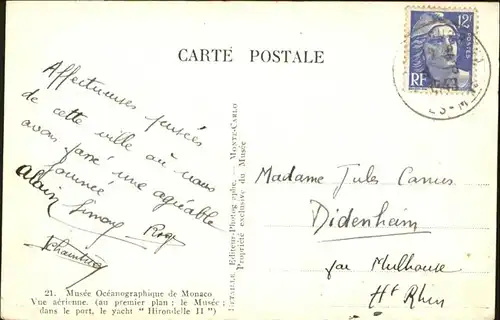 CARTE POSTALE
12F
POSTES
RF
Affectueuses pensées
de cette ville où nous
avons passé une agréable
journée
Alain Simony
DÉTAILLE Éditeur-Photographe. — MONTE-CARLO
Propriété exclusive du Musée
Madame Jules
Didenheim
par Mulhouse
Ht Rhin
21. Musée Océanographique de Monaco
Vue aérienne. (au premier plan : le Musée ;
dans le port, le yacht "Hirondelle II")